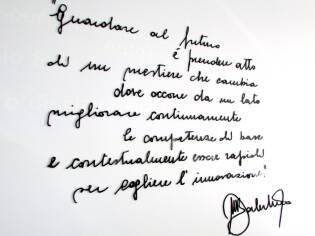 "Guardare al futuro
è prendere atto
di un mestiere che cambia
dove occorre da un lato
migliorare continuamente
le competenze di base
e contestualmente essere rapidi
per cogliere l'innovazione".